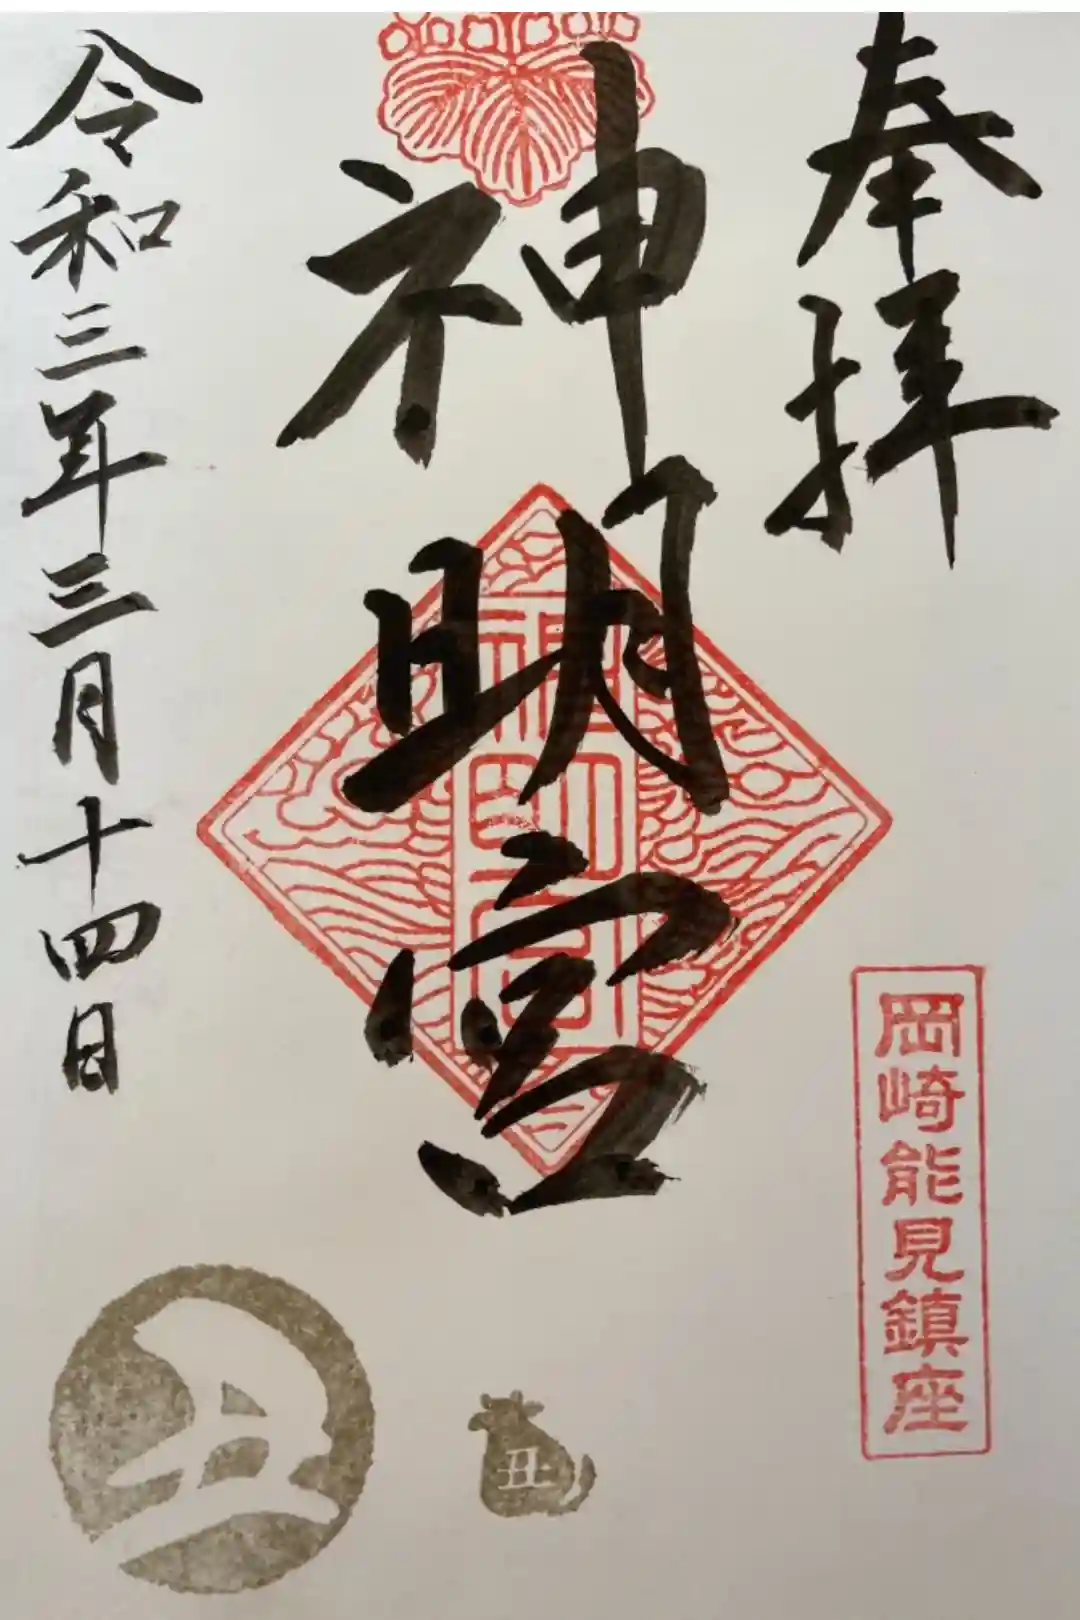 奉拝
岡崎能見鎮座
神明宮
神明宮
令和三年三月十四日
丑
丑